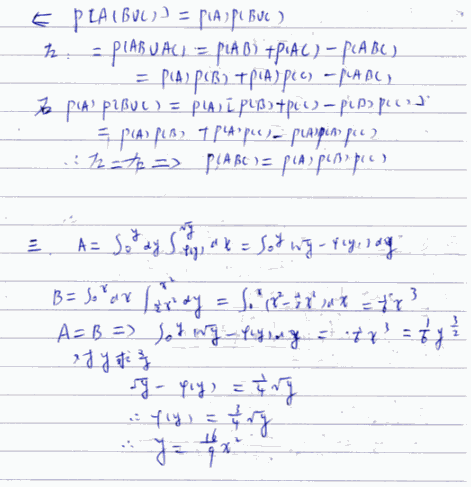 ⇐ P[A(B∪C)] = P(A)P(B∪C)
左 = P(AB∪AC) = P(AB) + P(AC) - P(ABC)
= P(A)P(B) + P(A)P(C) - P(ABC)
右 P(A)P(B∪C) = P(A)[P(B)+P(C) - P(B)P(C)]
= P(A)P(B) + P(A)P(C) - P(A)P(B)P(C)
∴ 左=右 => P(ABC) = P(A)P(B)P(C)
三 A = ∫₀^y dy ∫_{φ(y)}^{√y} dx = ∫₀^y (√y - φ(y)) dy
B = ∫₀^x dx ∫_{½x²}^{x²} dy = ∫₀^x (x² - ½x²) dx = ⅙x³
A=B => ∫₀^y (√y - φ(y)) dy = ⅙x³ = ⅙ y^{3/2}
对y求导
√y - φ(y) = ¼√y
∴ φ(y) = ¾√y
∴ y = 16/9 x²